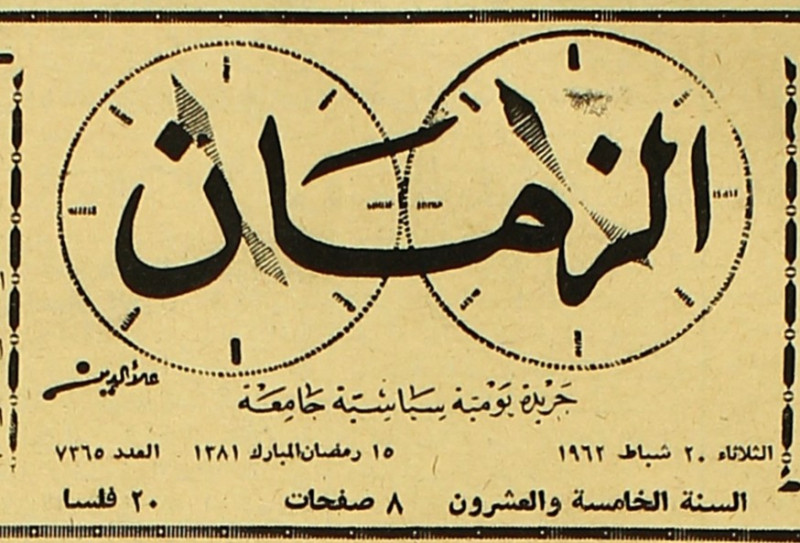 الزمان
علاءالدين
جريدة يومية سياسية جامعة
الثلاثاء ٢٠ شباط ١٩٦٢ ١٥ رمضان المبارك ١٣٨١ العدد ٧٣٦٥
السنة الخامسة والعشرون ٨ صفحات ٢٠ فلسا